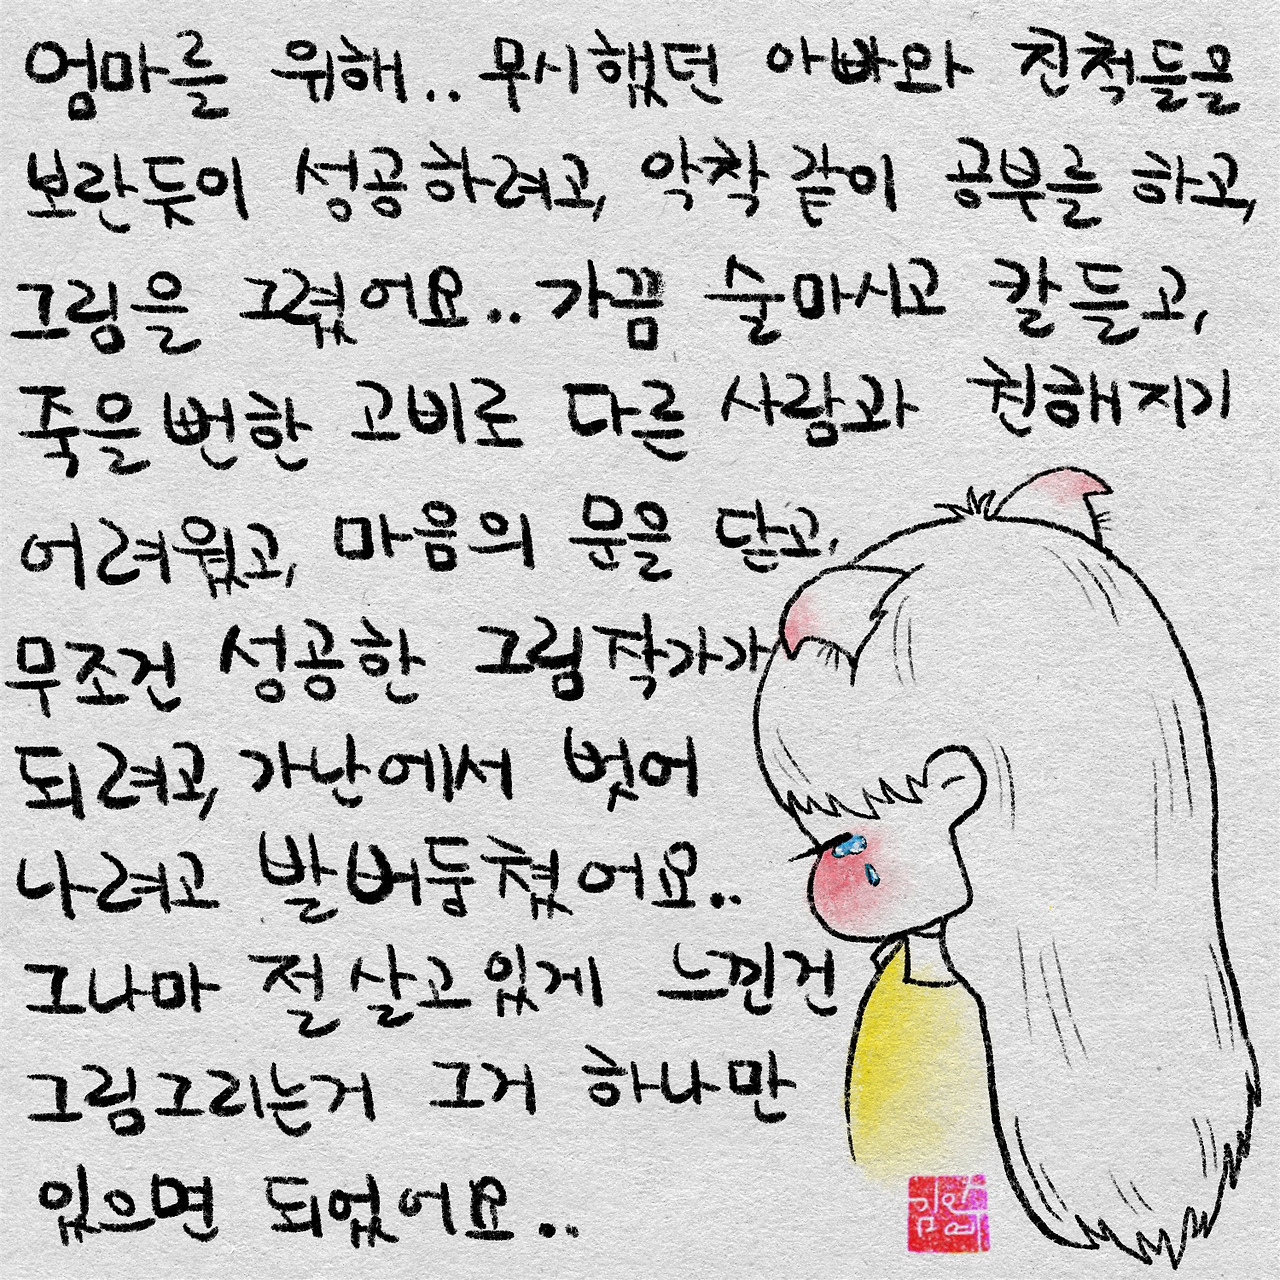 엄마를 위해.. 무시했던 아빠와 친척들을
보란듯이 성공하려고, 악착같이 공부를 하고,
그림을 그렸어요.. 가끔 술마시고 칼들고,
죽을뻔한 고비로 다른 사람과 친해지기
어려웠고, 마음의 문을 닫고,
무조건 성공한 그림작가가
되려고, 가난에서 벗어
나려고 발버둥쳤어요..
그나마 절 살고있게 느낀건
그림그리는거 그거 하나만
있으면 되었어요..